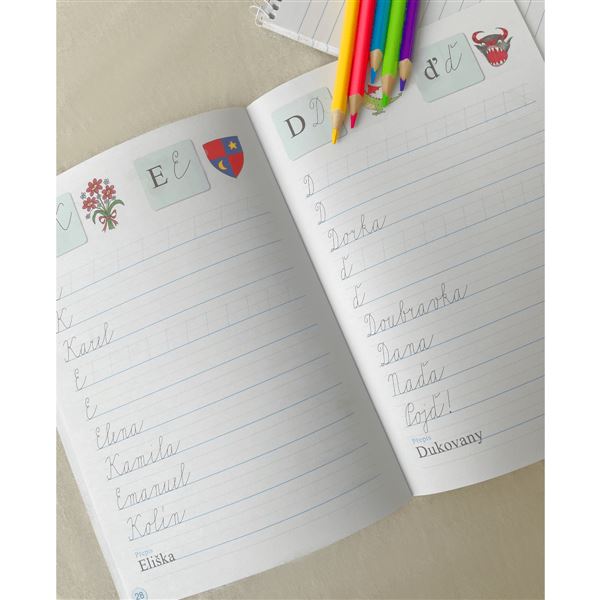 K
E E
K
K
Karel
E
E
Elena
Kamila
Emanuel
Kolín
Přepis
Eliška
28
D D
ď ď
D
D
Dorka
ď
ď
Doubravka
Dana
Naďa
Pojď!
Přepis
Dukovany